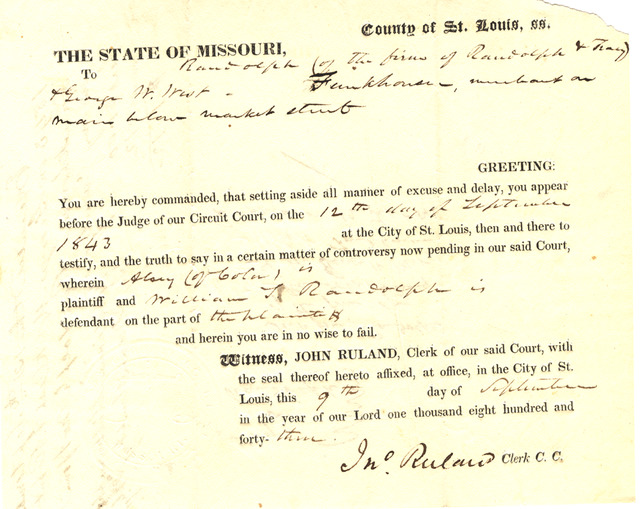 County of St. Louis, ss.
THE STATE OF MISSOURI,
To Randolph (of the firm of Randolph & Tracy)
& George W. West - Funkhouser, merchant on
main below market street
GREETING:
You are hereby commanded, that setting aside all manner of excuse and delay, you appear
before the Judge of our Circuit Court, on the 12th day of September
1843 at the City of St. Louis, then and there to
testify, and the truth to say in a certain matter of controversy now pending in our said Court,
wherein Alsey (of Color) is
plaintiff and William Randolph is
defendant on the part of the Plaintiff
and herein you are in no wise to fail.
Witness, JOHN RULAND, Clerk of our said Court, with
the seal thereof hereto affixed, at office, in the City of St.
Louis, this 9th day of September
in the year of our Lord one thousand eight hundred and
forty-three.
Jno. Ruland Clerk C. C.